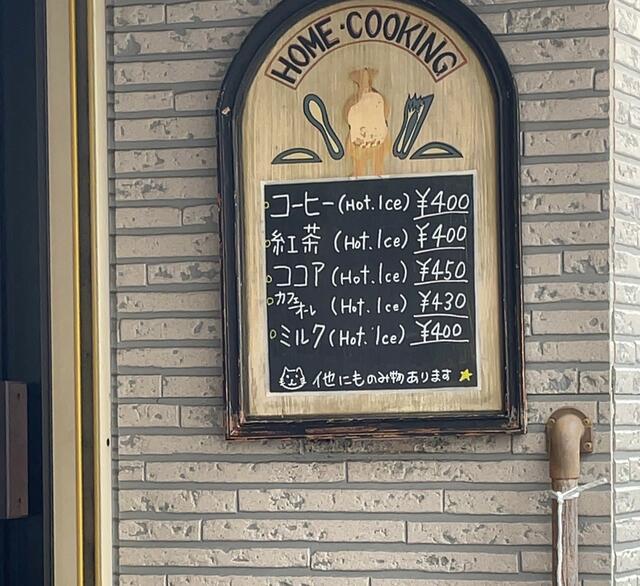 HOME・COOKING
コーヒー (Hot. Ice) ¥400
紅茶 (Hot. Ice) ¥400
ココア (Hot. Ice) ¥450
カフェオーレ (Hot. Ice) ¥430
ミルク (Hot. Ice) ¥400
他にものみ物あります